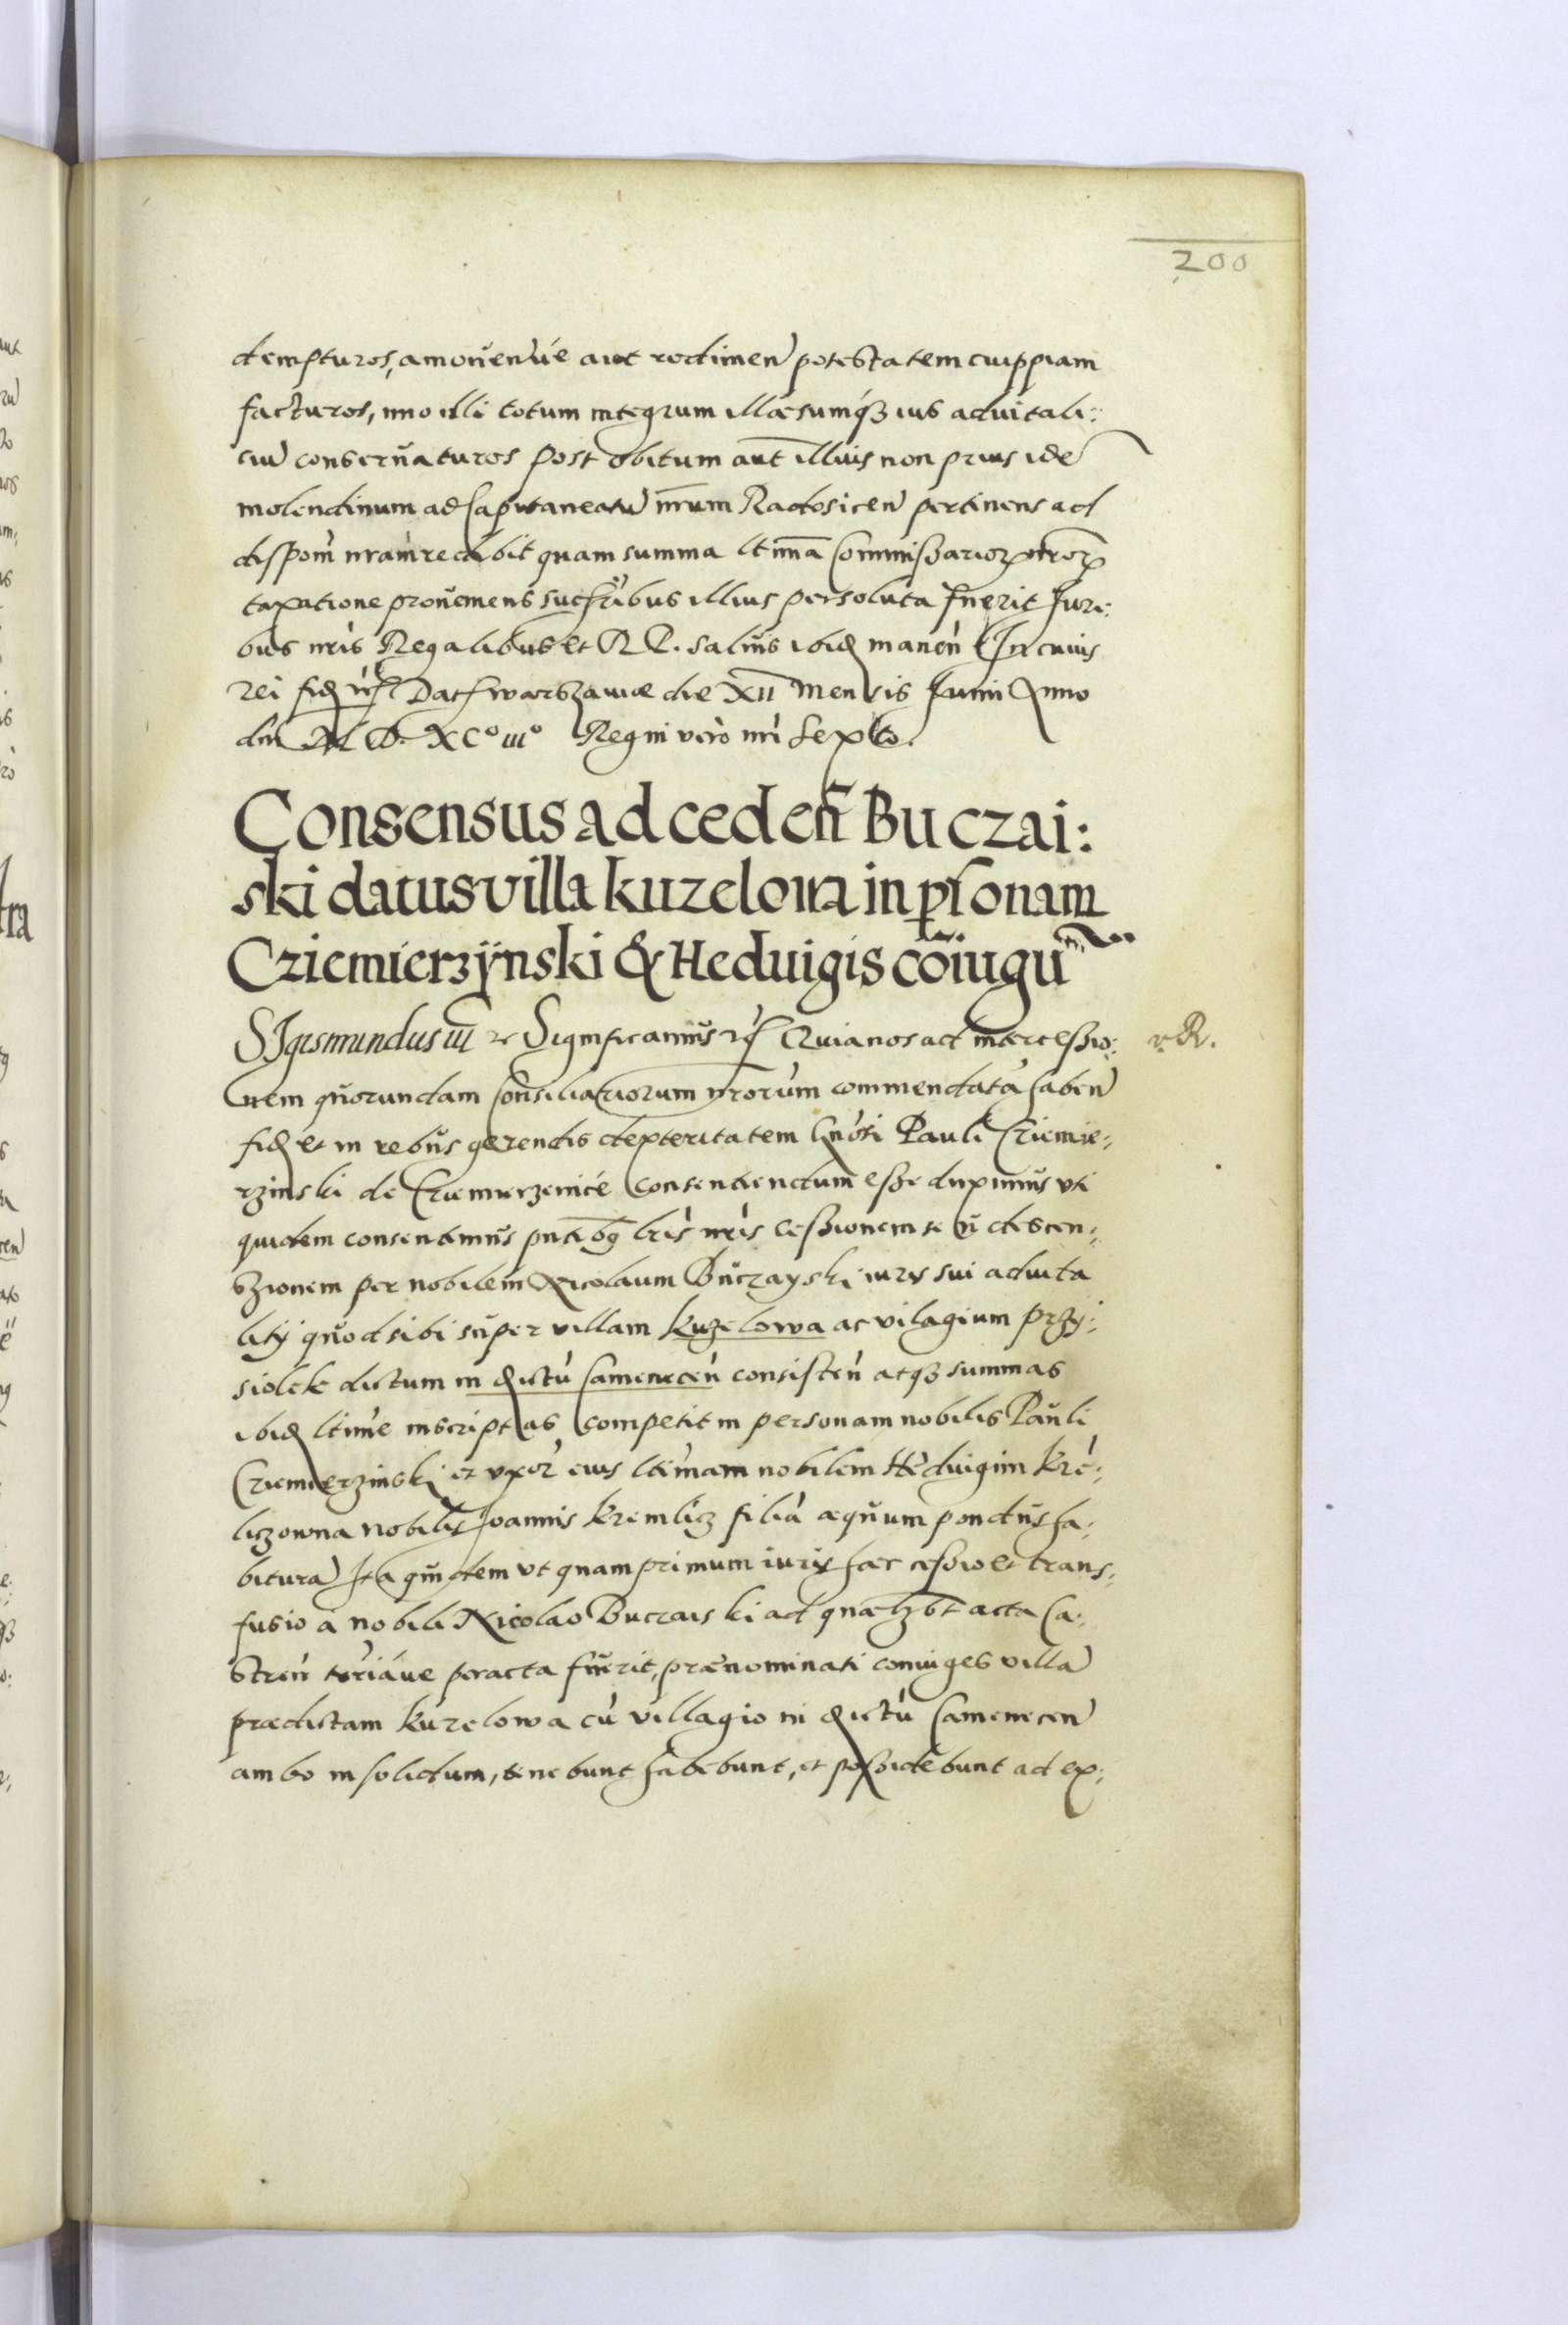 200
dempturos, amovenve aut redimen potestatem cuippiam
facturos, imo illi totum integrum illæsumq́ꝫ ius advitali:
cium conservaturos post obitum aut illius non prius idē
molendinum ad Capitaneatū nrum Radosicen pertinens ad
dispom nram redibit quam summa ltima Commissarior nror
taxatione proveniens succribus illius persoluta fuerit Juri:
bus nris Regalibus et R P. salvis ibid manen In cuius
rei fid Dat Warszaviæ die XII Mensis Junii Anno
dni M D. XC° III° Regni vero nri Sexto.
Consensus ad ceden Buczai:
ski datus villa kuzelowa in psonam
Cziemierzÿnski & Heduigis coiugū
SIgismundus III Significamus Quia nos ad intercessio:
nem quorundam Consiliariorum nrorum commendatā haben
fid et in rebus gerendis dexteritatem Gnosi Pauli Cziemie:
rzinski de Cziemierzenice consentiendum esse duximus uti
quidem consentimus pntibg lris nris cessionem seu descen:
szionem per nobilem Nicolaum Buczayski iuris sui advita
litÿ quod sibi super villam kuzelowa ac vilagium przy:
siolek dictum in dictu Camenecen consisten atqꝫ summas
ibid ltime inscriptas competit in personam nobilis Pauli
Cziemierzinski et uxor eius ltimam nobilem Heduigim kre:
liczowna nobilis Joannis kremlicz filia æquum pondus ha:
bitura Ita quidem ut quamprimum iuris hæc cessio et trans:
fusio a nobili Nicolao Buczaiski ad quælzbt acta Ca:
stren teriáve peracta fuerit, prænominati coniuges villā
prædictam kuzelowa cū villagio in dictu Camenecen
ambo in solidum, tenebunt habebunt, et possidebunt ad ex:
R.